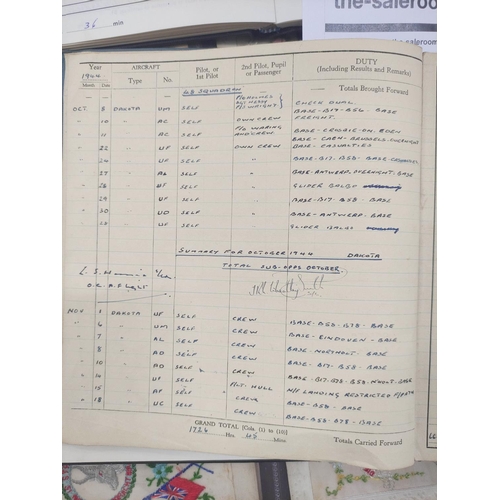 the-saleroom
the-saleroom
36 min
Year AIRCRAFT Pilot, or 1st Pilot 2nd Pilot, Pupil or Passenger DUTY (Including Results and Remarks)
1944
Month Date Type No.
— — — 48 SQUADRON — Totals Brought Forward
OCT. 8 DAKOTA UM SELF P/O HOLMES SGT HERD F/O WRIGHT CHECK DUAL
BASE-B17-B56-BASE
" 10 " AC SELF OWN CREW FREIGHT.
" 11 " AC SELF F/O WARING AND CREW. BASE-CROSBIE-ON-EDEN
BASE-CAEN-BRUSSELS-OVERNIGHT
" 22 " UF SELF OWN CREW BASE-CASUALTIES
" 24 " UF SELF " BASE-B17-B58-BASE
" 27 " SELF " BASE-ANTWERP-OVERNIGHT-BASE
" 28 " UF SELF " GLIDER BALBO
" 29 " UF SELF " BASE-B17-B58-BASE
" 30 " UO SELF " BASE-ANTWERP-BASE
" " SELF " GLIDER BALBO
SUMMARY FOR OCTOBER 1944 DAKOTA
TOTAL SUB-OPPS OCTOBER
O.C. A. Flight
NOV 1 DAKOTA UF SELF CREW BASE-B58-B78-BASE
" 6 " UM SELF CREW BASE-EINDOVEN-BASE
" 7 " AL SELF CREW BASE-NORTHOLT-BASE
" 8 " AD SELF CREW BASE-B58-B78-BASE
" 10 " AD SELF CREW BASE-B17-B58-NHOLT-BASE
" 14 " UF SELF F/LT. HULL N/F LANDING RESTRICTED
" 15 " AF SELF CREW BASE-B58-BASE
" 18 " UC SELF CREW BASE-B58-B78-BASE
GRAND TOTAL [Cols. (1) to (10)]
1726 Hrs. 45 Mins.
Totals Carried Forward